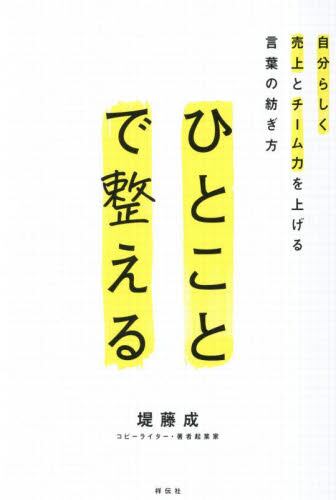 自分らしく
売上とチーム力を上げる
言葉の紡ぎ方
ひとこと
で整える
堤藤成
コピーライター・著者起業家
祥伝社